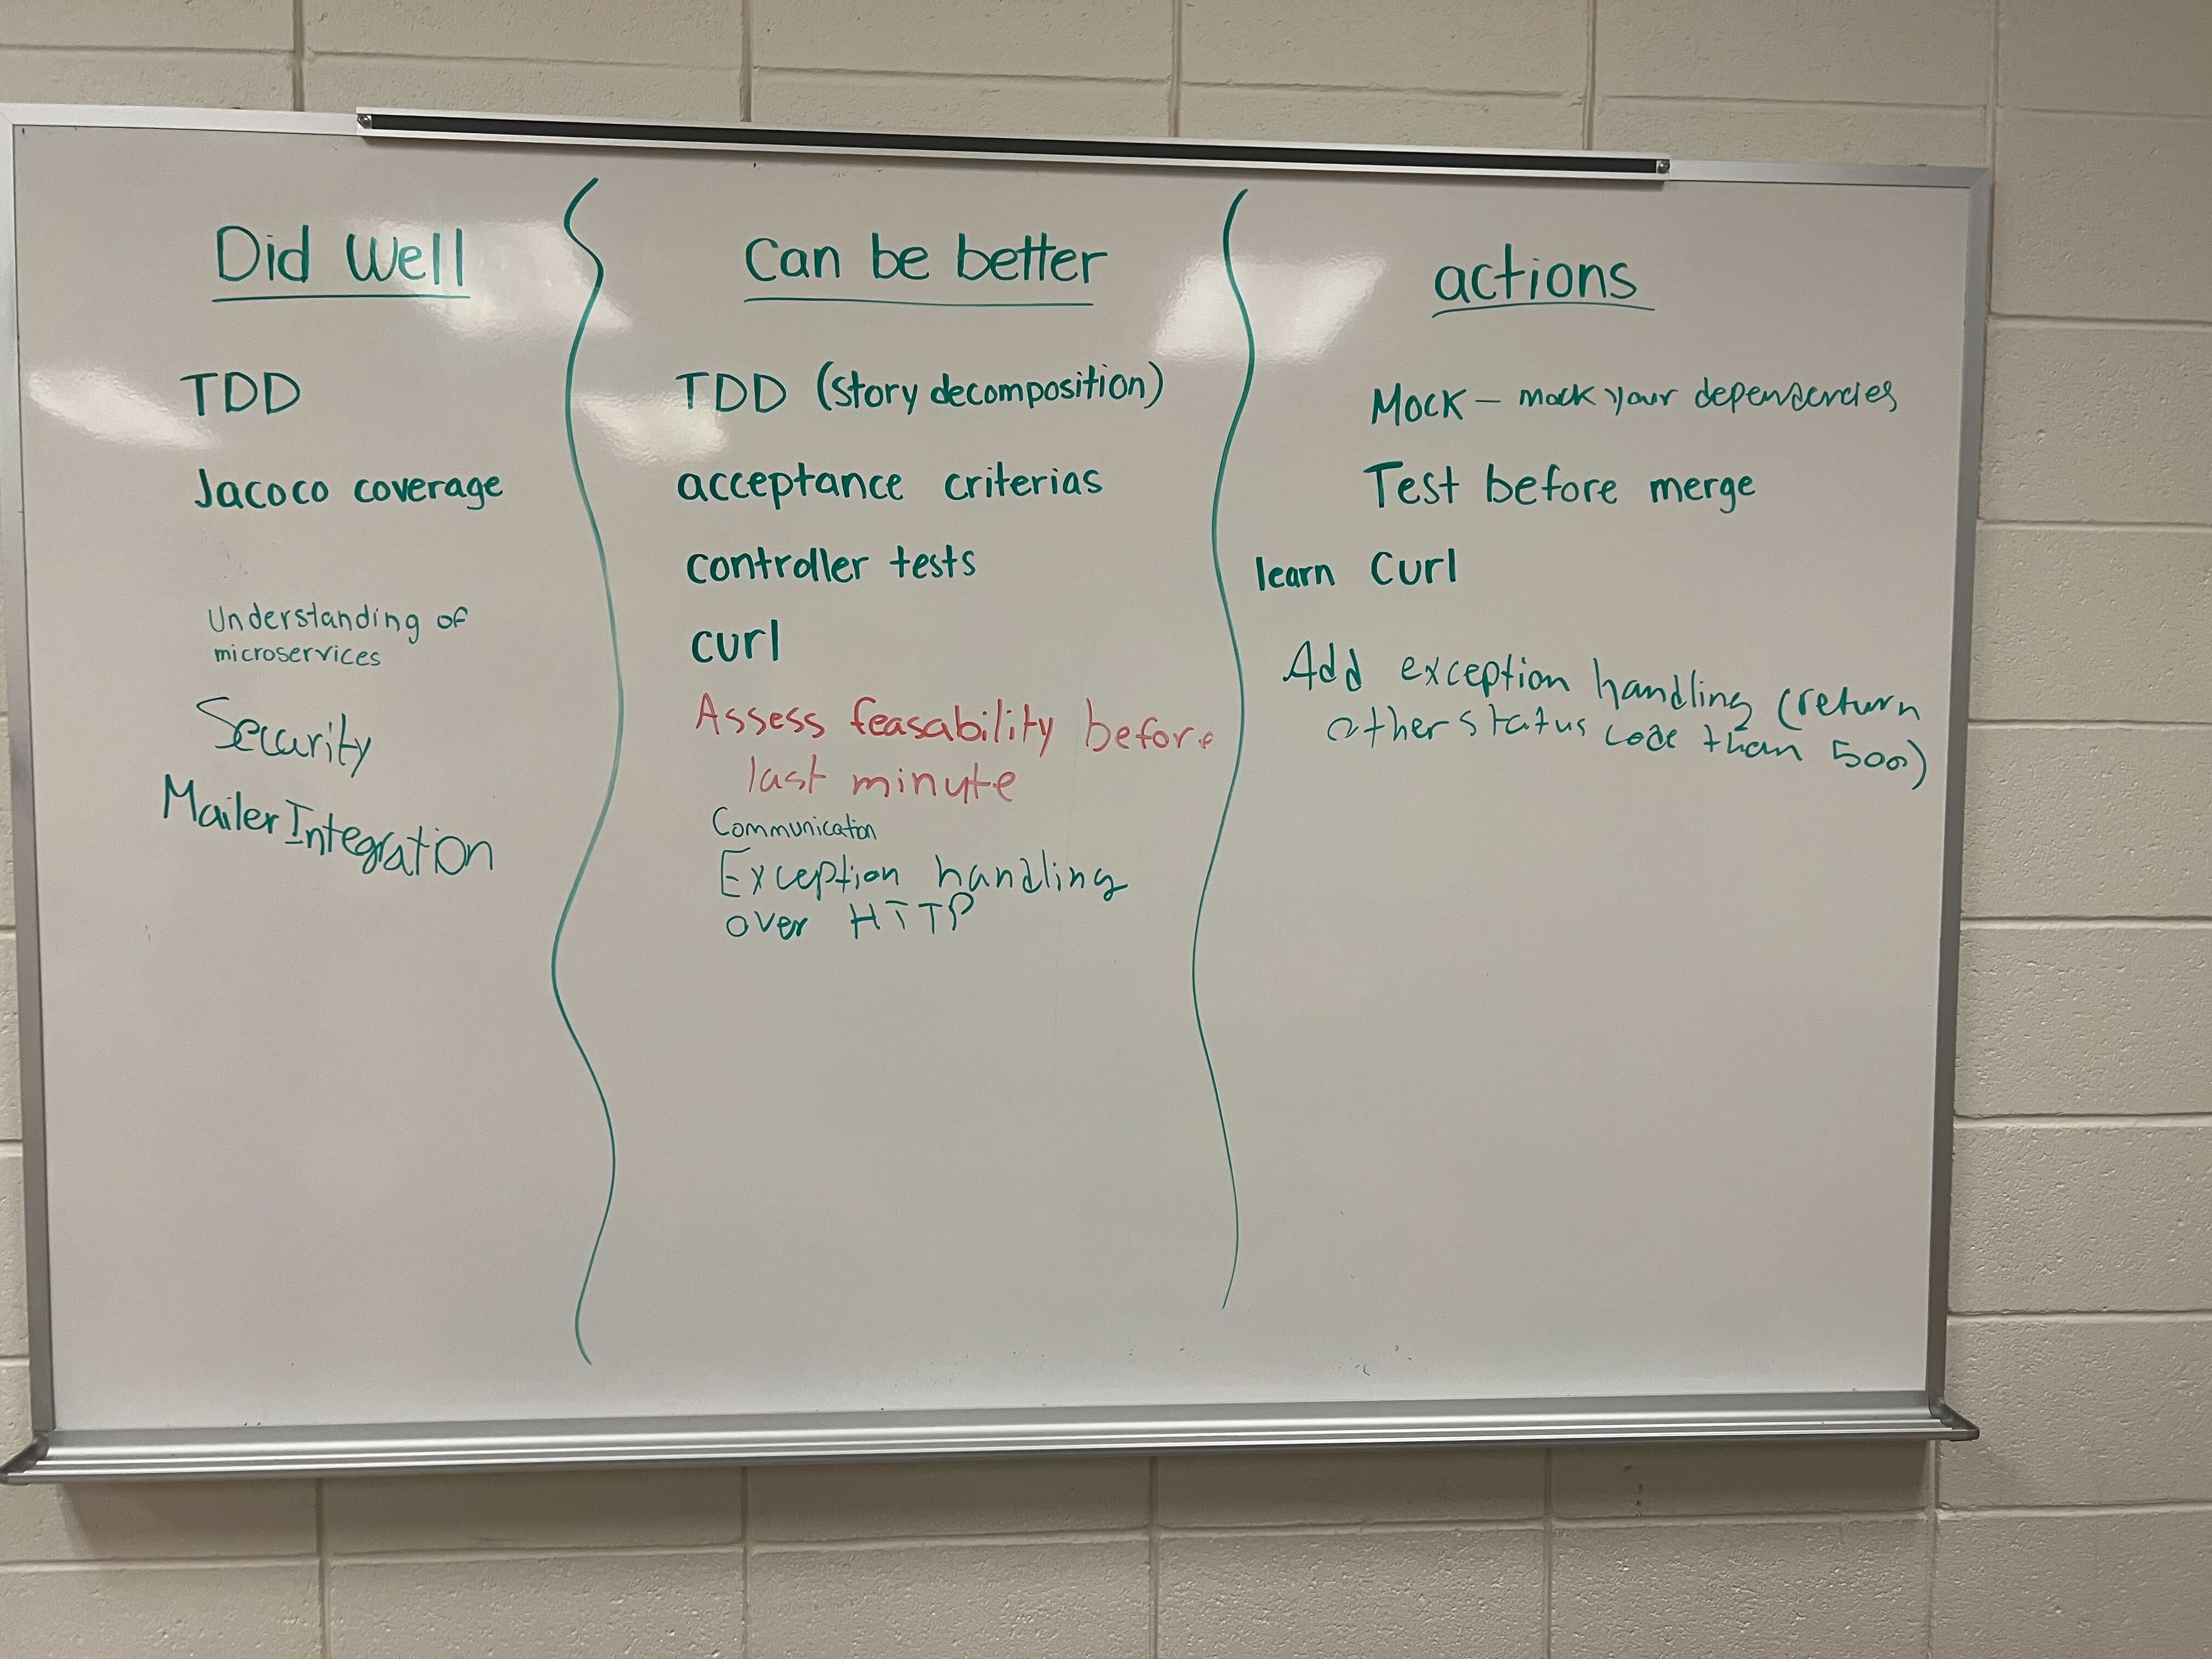 Did Well
TDD
Jacoco coverage
Understanding of
microservices
Security
Mailer Integration
Can be better
TDD (Story decomposition)
acceptance criterias
controller tests
curl
Assess feasability before
last minute
Communication
Exception handling
over HTTP
actions
Mock – mock your dependencies
Test before merge
learn Curl
Add exception handling (return
other status code than 500)